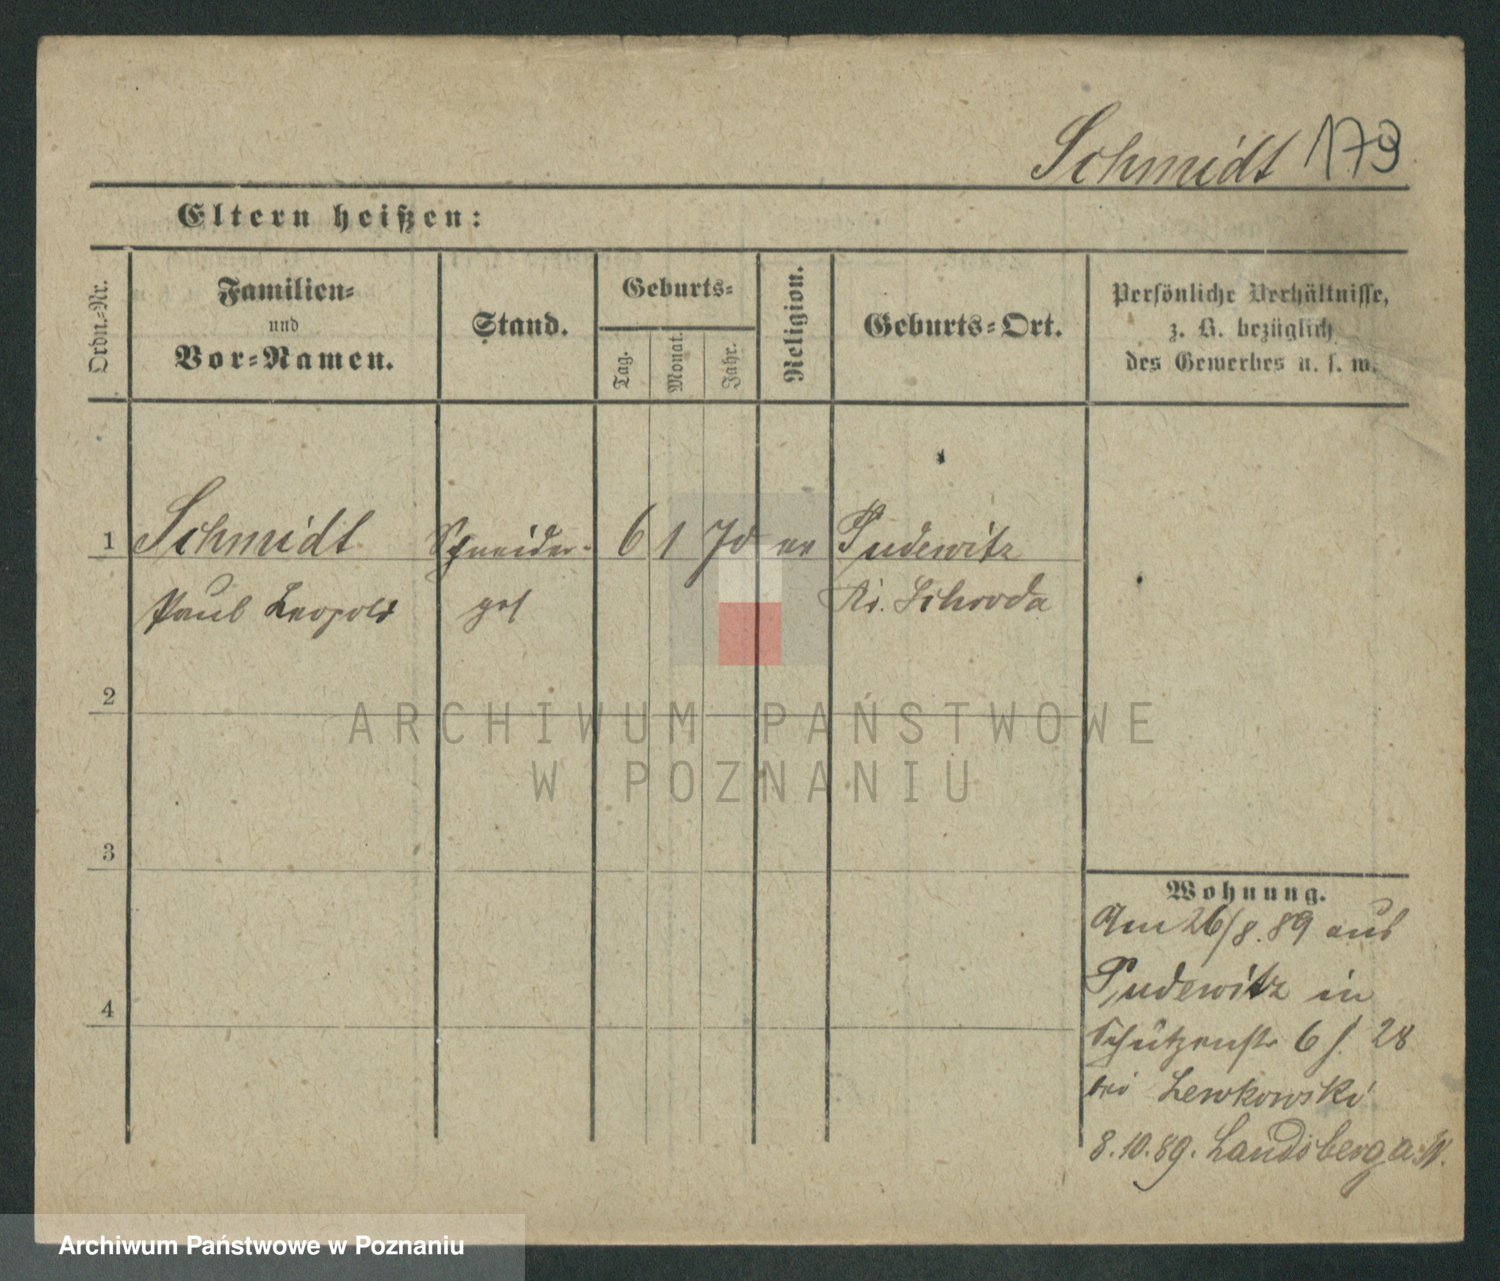 Schmidt 173
Eltern heißen:
Ordn.-Nr.
Familien-
und
Vor-Namen.
Stand.
Geburts-
Tag.
Monat.
Jahr.
Religion.
Geburts-Ort.
Persönliche Verhältnisse,
z. B. bezüglich
des Gewerbes u. s. w.
1 Schmidt Schneider- 6 1 70 ev Pudewitz
Paul Leopold ges Kr. Schroda
2
3
4
Wohnung.
Am 26/8.89 aus
Pudewitz in
Schützenstr 6 28
bei Lewkowski
8.10.89. Landsberg a. W.
ARCHIWUM PAŃSTWOWE
W POZNANIU
Archiwum Państwowe w Poznaniu